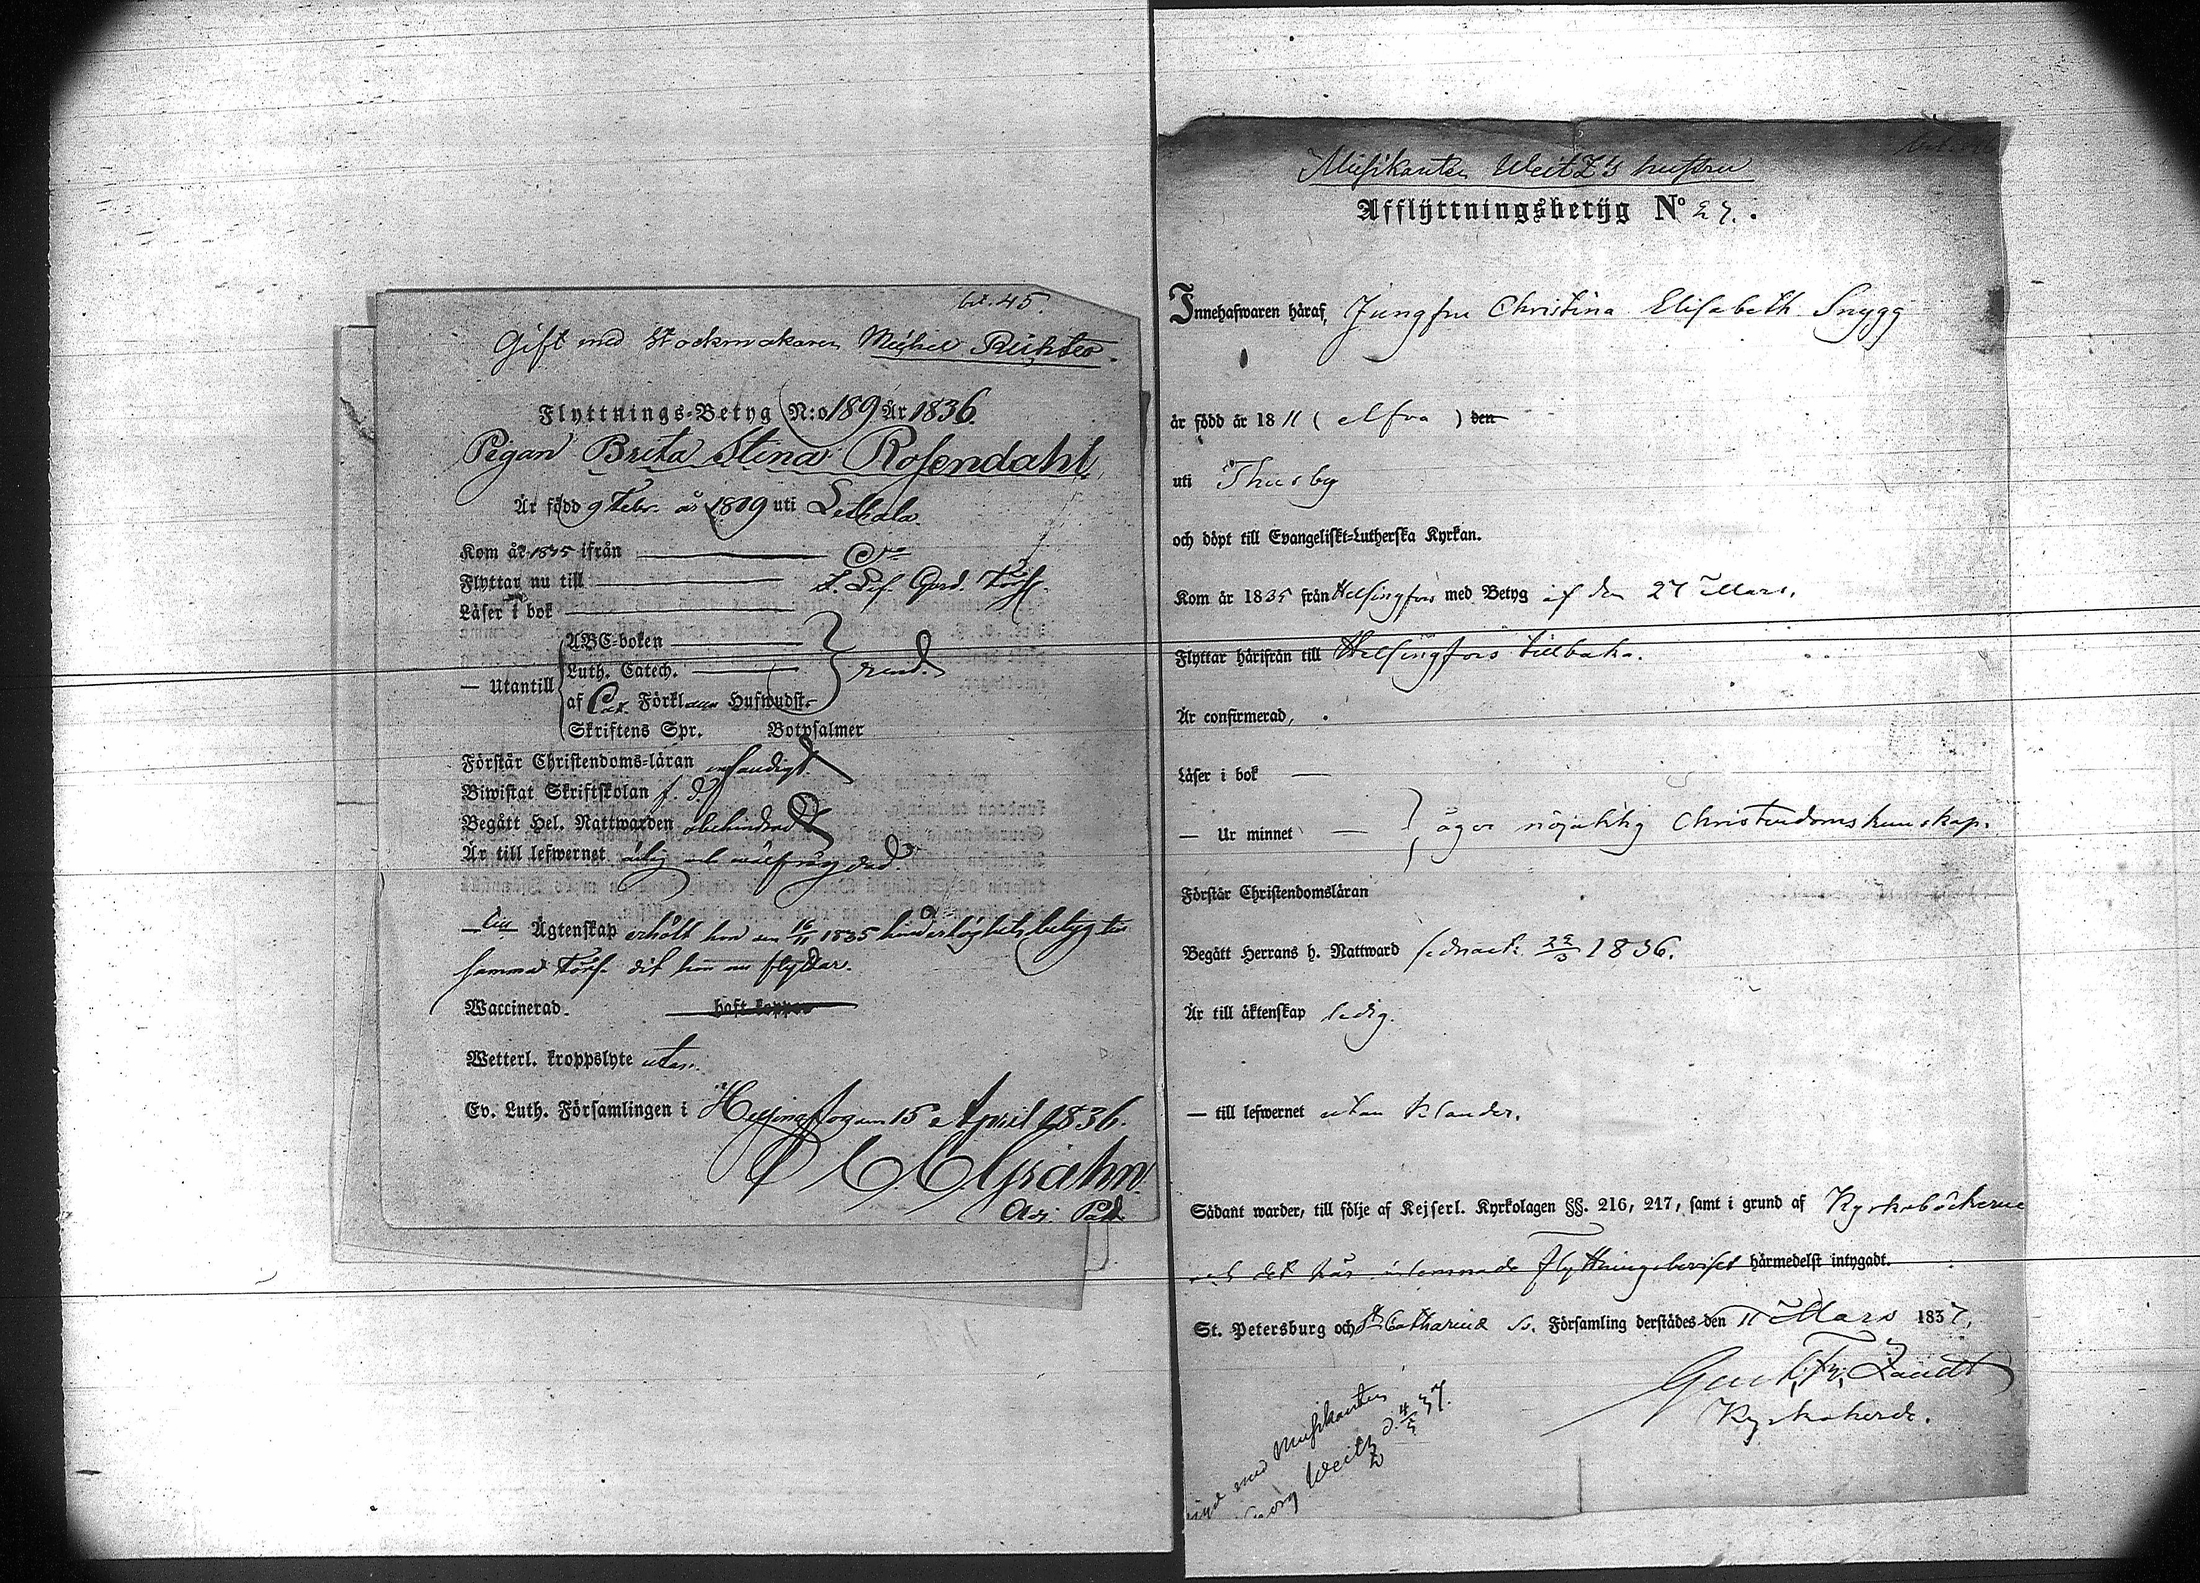 bl. 45.
Gift med Stockmakaren Michel Richter.
Flyttnings-Betyg N:o 189 År 1836.
Pigan Brita Stina Rosendahl
Är född 9 Febr. år 1809 uti
Kom år 1835 ifrån
Flyttar nu till
Läser i bok
— Utantill
ABC-boken
Luth. Catech.
af Förkl Hufwudst.
Skriftens Spr. Botpsalmer
Förstår Christendoms-läran
Biwistat Skriftskolan
Begått Hel. Nattwarden obehindrad
Är till lefwernet ärlig och
Ägtenskap erhölt hon den 16/11 1835 hinderlöghets betyg till
samma dit hon nu flyttar.
Waccinerad. haft koppor
Wetterl. kroppslyte utan.
Ev. Luth. Församlingen i Helsingfors den 15 April 1836.
Grahn
Adj. Past.
Musikanten Weitz's hustru
Afflyttningsbetyg No 27.
Innehafwaren häraf, Jungfru Christina Elisabeth Snygg
är född år 1811 (elfva) den
uti Thusby
och döpt till Evangeliskt-Lutherska Kyrkan.
Kom år 1835 från Helsingfors med Betyg af den 27 Mars.
Flyttar härifrån till Helsingfors tillbaka.
Är confirmerad,
Läser i bok —
— Ur minnet — äger nöjaktig Christendomskunskap.
Förstår Christendomsläran
Begått Herrans h. Nattward sednast 29/3 1836.
Är till äktenskap ledig.
— till lefwernet utan klander.
Sådant warder, till följe af Kejserl. Kyrkolagen §§. 216, 217, samt i grund af Kyrkoböckerne
och det här inlemnade Flyttningsbeviset härmedelst intygadt.
St. Petersburg och St Catharinæ Sv. Församling derstädes den 11 Mars 1837.
Kyrkoherde.
med Musikanten
Georg Weitz d. 4/5 37.